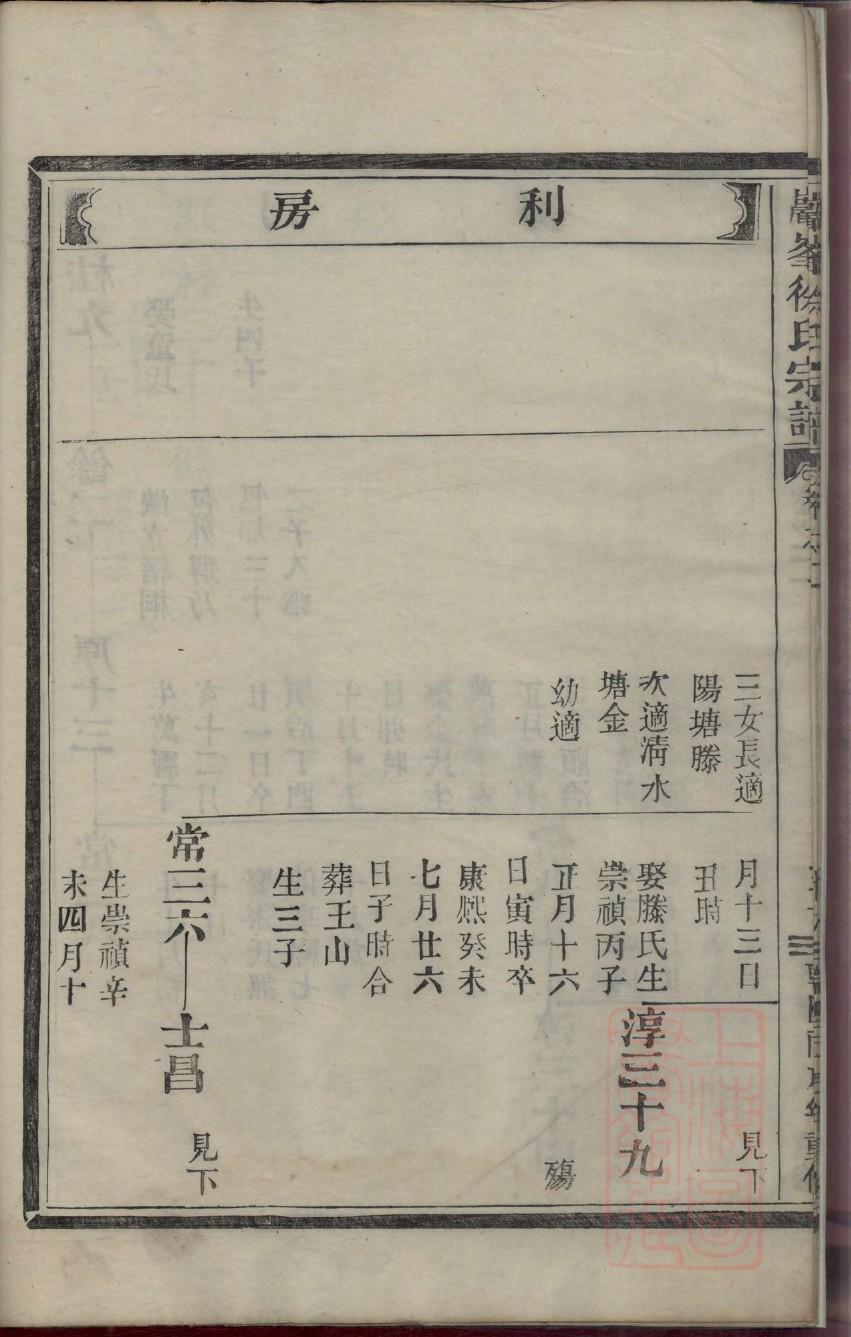 巖峯徐氏宗譜
利房
三女長適
陽塘滕
次適清水
塘金
幼適
月十三日
丑時
見下
娶滕氏生
崇禎丙子
正月十六
日寅時卒
康熙癸未
七月廿六
日子時合
葬王山
生三子
淳三十九
殤
常三六
士昌
見下
生崇禎辛
未四月十